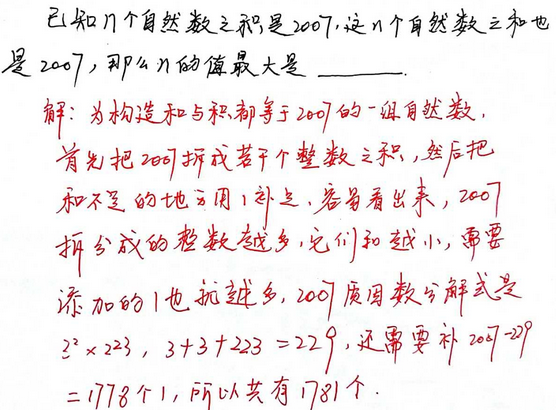 已知n个自然数之积是2007,这n个自然数之和也
是2007,那么n的值最大是 ______.
解:为构造和与积都等于2007的一组自然数,
首先把2007拆成若干个整数之积,然后把
和不足的地方用1补足.容易看出来,2007
拆分成的整数越多,它们和越小,需要
添加的1也就越多,2007质因数分解式是
3²×223, 3+3+223=229,还需要补2007-229
=1778个1,所以共有1781个.